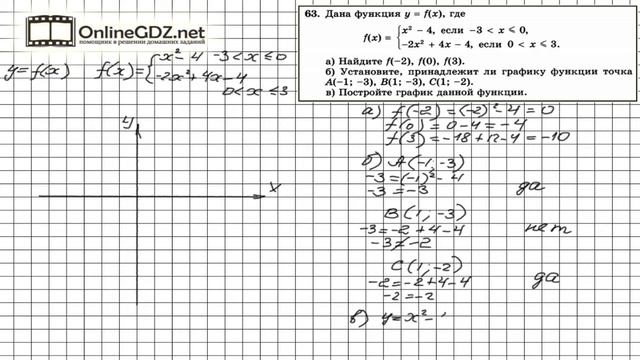 OnlineGDZ.net
помощник в решении домашних заданий
63. Дана функция y = f(x), где
f(x) = { x² − 4, если −3 < x ⩽ 0,
−2x² + 4x − 4, если 0 < x ⩽ 3.
а) Найдите f(−2), f(0), f(3).
б) Установите, принадлежит ли графику функции точка
A(−1; −3), B(1; −3), C(1; −2).
в) Постройте график данной функции.
y=f(x) f(x)= { x²−4 −3<x≤0
−2x²+4x−4
0<x≤3
y
x
а) f(−2)=(−2)²−4=0
f(0)=0−4=−4
f(3)=−18+12−4=−10
б) A(−1,−3)
−3=(−1)²−4
−3=−3 да
B(1;−3)
−3=−2+4−4 нет
−3≠−2
C(1;−2)
−2=−2+4−4 да
−2=−2
в) y=x²−